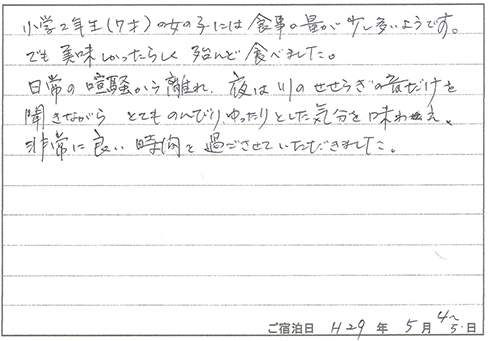 小学2年生(7才)の女の子には食事の量が少し多いようです。
でも美味しかったらしく殆んど食べました。
日常の喧騒から離れ、夜は川のせせらぎの音だけを
聞きながら とてものんびりゆったりとした気分を味わえ、
非常に良い時間を過ごさせていただきました。
ご宿泊日 H29 年 5 月 4~5 日